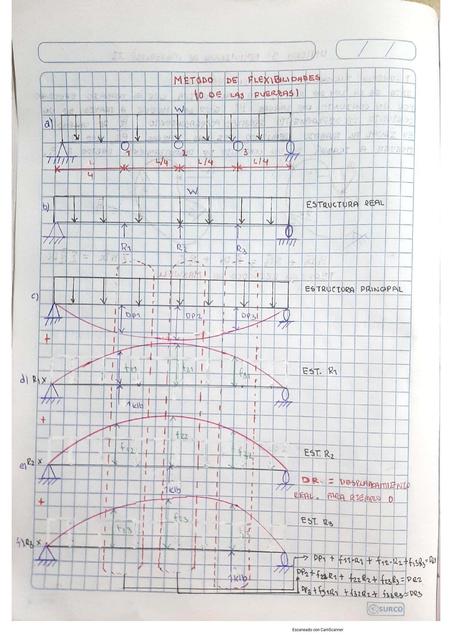 METODO DE FLEXIBILIDADES
(O DE LAS FUERZAS)
W
a)
1 2 3
L/4 L/4 L/4 L/4
W
b)
ESTRUCTURA REAL
R1 R2 R3
ESTRUCTURA PRINCIPAL
c)
DP1 DP2 DP3
+
d) R1 x
f11 f21 f31
EST. R1
1klb
+
f12 f22 f32
e) R2 x
EST. R2
DR = DESPLAZAMIENTO
REAL. PARA EJEMPLO 0
1klb
+
f13 f23
EST R3
f) R3 x
DP1 + f11·R1 + f12·R2 + f13·R3 = DR1
DP2 + f21R1 + f22R2 + f23R3 = DR2
1klb
DP3 + f31R1 + f32R2 + f33R3 = DR3
SURCO
Escaneado con CamScanner